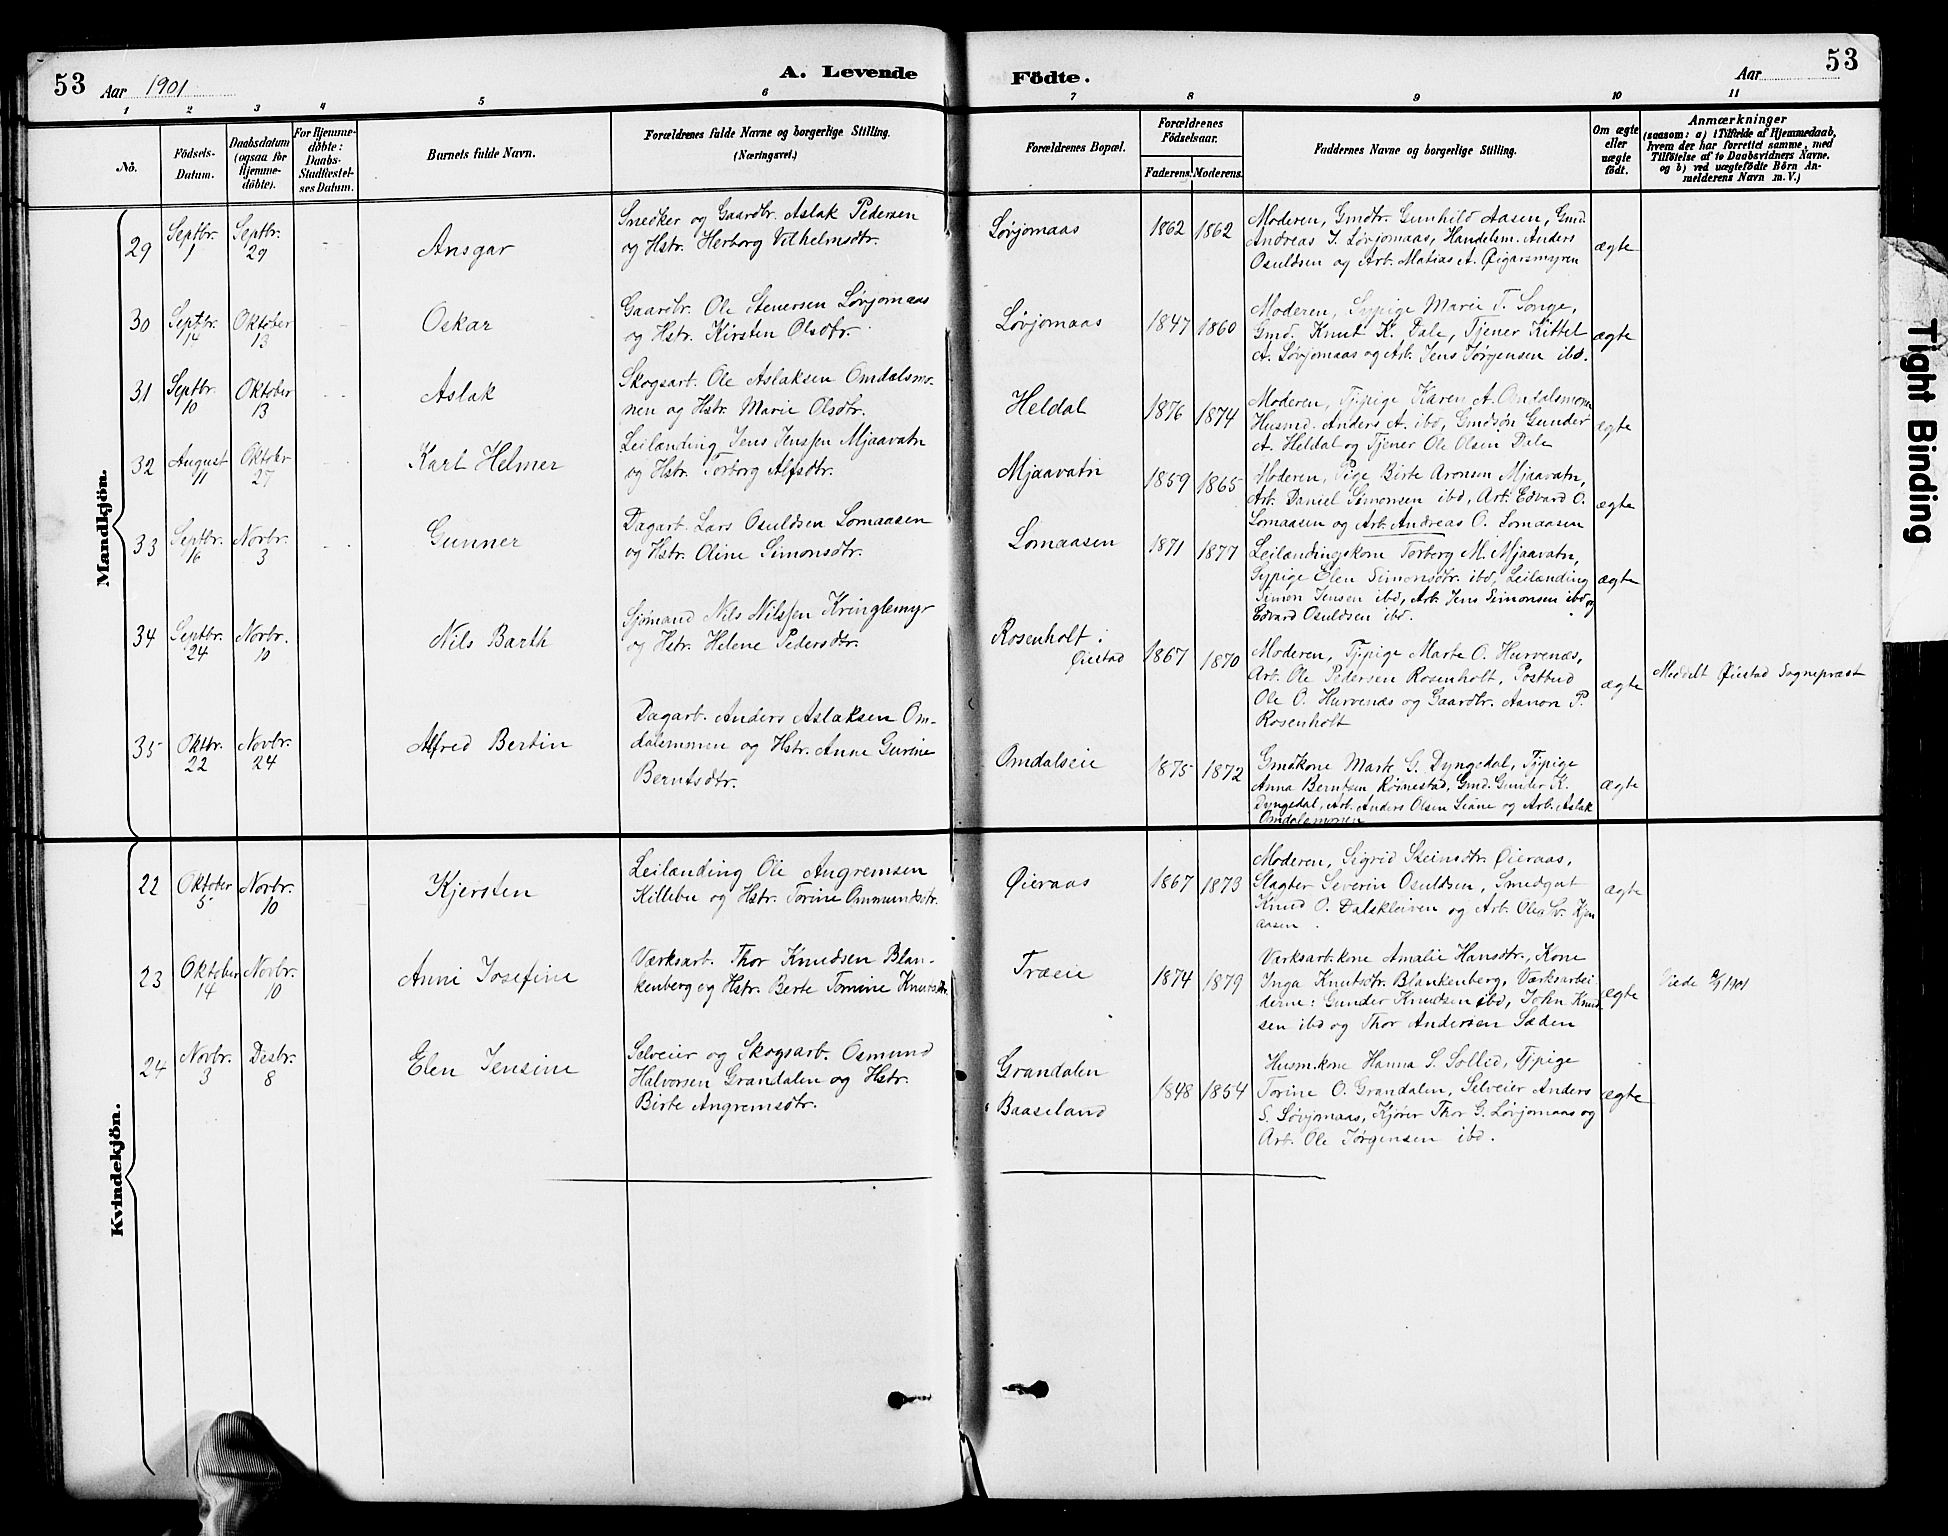 53
Aar 1901
A. Levende
Födte.
Aar
53
1 2 3 4 5 6 7 8 9 10 11
No.
Födsels-
Datum.
Daabsdatum
(ogsaa for
Hjemme-
döbte).
For Hjemme-
döbte:
Daabs-
Stadfæstel-
ses Datum.
Barnets fulde Navn.
Forældrenes fulde Navne og borgerlige Stilling.
(Næringsvei.)
Forældrenes Bopæl.
Forældrenes
Födselsaar.
Faderens. Moderens.
Faddernes Navne og borgerlige Stilling.
Om ægte
eller
uægte
födt.
Anmærkninger
(saasom: a) i Tilfælde af Hjemmedaab,
hvem der har forrettet samme, med
Tilföielse af to Daabsvidners Navne.
og b) ved uægtefödte Börn An-
melderens Navn m. V.)
Mandkjön.
29
Septbr.
1
Septbr.
29
Ansgar
Snedker og Gaardbr. Aslak Pedersen
og Hstr. Herborg Vilhelmsdtr.
Løvjomaas
1862 1862
Moderen, Gmdtr. Gunhild Aasen, Gmd.
Andreas J. Løvjomaas, Handelsm. Anders
Osuldsen og Arb. Matias A. Øigarsmyren
ægte
30
Septbr.
14
Oktober
13
Oskar
Gaardbr. Ole Stenersen Løvjomaas
og Hstr. Kirsten Olsdtr.
Løvjomaas
1847 1860
Moderen, Sypige Marie T. Songe,
Gmd. Knut K. Dale, Tjener Kittel
A. Løvjomaas og Arb. Jens Jørgensen ibd.
ægte
31
Septbr.
10
Oktober
13
Aslak
Skogsarb. Ole Aslaksen Omdalsmo-
nen og Hstr. Marie Olsdtr.
Heldal
1876 1874
Moderen, Tjpige Karen A. Omdalsmonen
Husmd. Anders A. ibd, Gmdsøn Gunder
A. Heldal og Tjener Ole Olsen Dale
ægte
32
August
11
Oktober
27
Karl Helmer
Leilænding Jens Jenssen Mjaavatn
og Hstr. Torborg Alfsdtr.
Mjaavatn
1859 1865
Moderen, Pige Birte Aronsen Mjaavatn,
Arb. Daniel Simonsen ibd, Arb. Edvard O.
Lomaasen og Arb. Andreas O. Lomaasen
ægte
33
Septbr.
16
Novbr.
3
Gunner
Dagarb. Lars Osuldsen Lomaasen
og Hstr. Oline Simonsdtr.
Lomaasen
1871 1877
Leilændingskone Torberg M. Mjaavatn,
Sypige Elen Simonsdtr. ibd, Leilænding
Simon Jensen ibd, Arb. Jens Simonsen ibd og
Edvard Osuldsen ibd.
ægte
34
Septbr.
24
Novbr.
10
Nils Barth
Sjømand Nils Nilssen Kringlemyr
og Hstr. Helene Pedersdtr.
Rosenholt i
Øiestad
1867 1870
Moderen, Tjpige Marte O. Hurvenæs,
Arb. Ole Pedersen Rosenholt, Postbud
Ole O. Hurvenæs og Gaardbr. Aanon P.
Rosenholt
ægte
Meddelt Øiestad Sognepræst
35
Oktbr.
22
Novbr.
24
Alfred Bertin
Dagarb. Anders Aslaksen Om-
dalsmmen og Hstr. Anne Gurine
Berntsdtr.
Omdalseie
1875 1872
Gmdkone Marte G. Dyngedal, Tjpige
Anna Berntsen, Röinestad, Gmd. Gunder K.
Dyngedal, Arb. Anders Olsen Leane og Arb. Aslak
Omdalsmonen
ægte
Kvindekjön.
22
Oktober
5
Novbr.
10
Kjersten
Leilænding Ole Angremsen
Killebu og Hstr. Torine Ommundsdtr.
Øieraas
1867 1873
Moderen, Sigrid Steinsdtr. Øieraas,
Slagter Severin Osuldsen, Smedgut
Knud O. Dalskleiven og Arb. Ole Sv. Kjen
aasen.
ægte
23
Oktober
14
Novbr.
10
Anne Josefine
Værksarb. Thor Knudsen Blan-
kenberg og Hstr. Berte Tomine Knutsdtr.
Træeie
1874 1879
Værksarb.kone Amalie Hansdtr., Kone
Inga Knutsdtr. Blankenberg, Værksarbei
derne: Gunder Knudsen ibd, John Knud-
sen ibd og Thor Andersen Sæden
ægte
Viede 1901
24
Novbr.
3
Desbr.
8
Elen Jensine
Selveier og Skogsarb. Osmund
Halvorsen Grandalen og Hstr.
Birte Angremsdtr.
Grandalen
Baaseland
1848 1854
Husm.kone Hanna S. Sollid, Tjpige
Torine O. Grandalen, Selveier Anders
S. Løvjomaas, Kjører Thor G. Løvjomaas og
Arb. Ole Jørgensen ibd.
ægte
Tight Binding